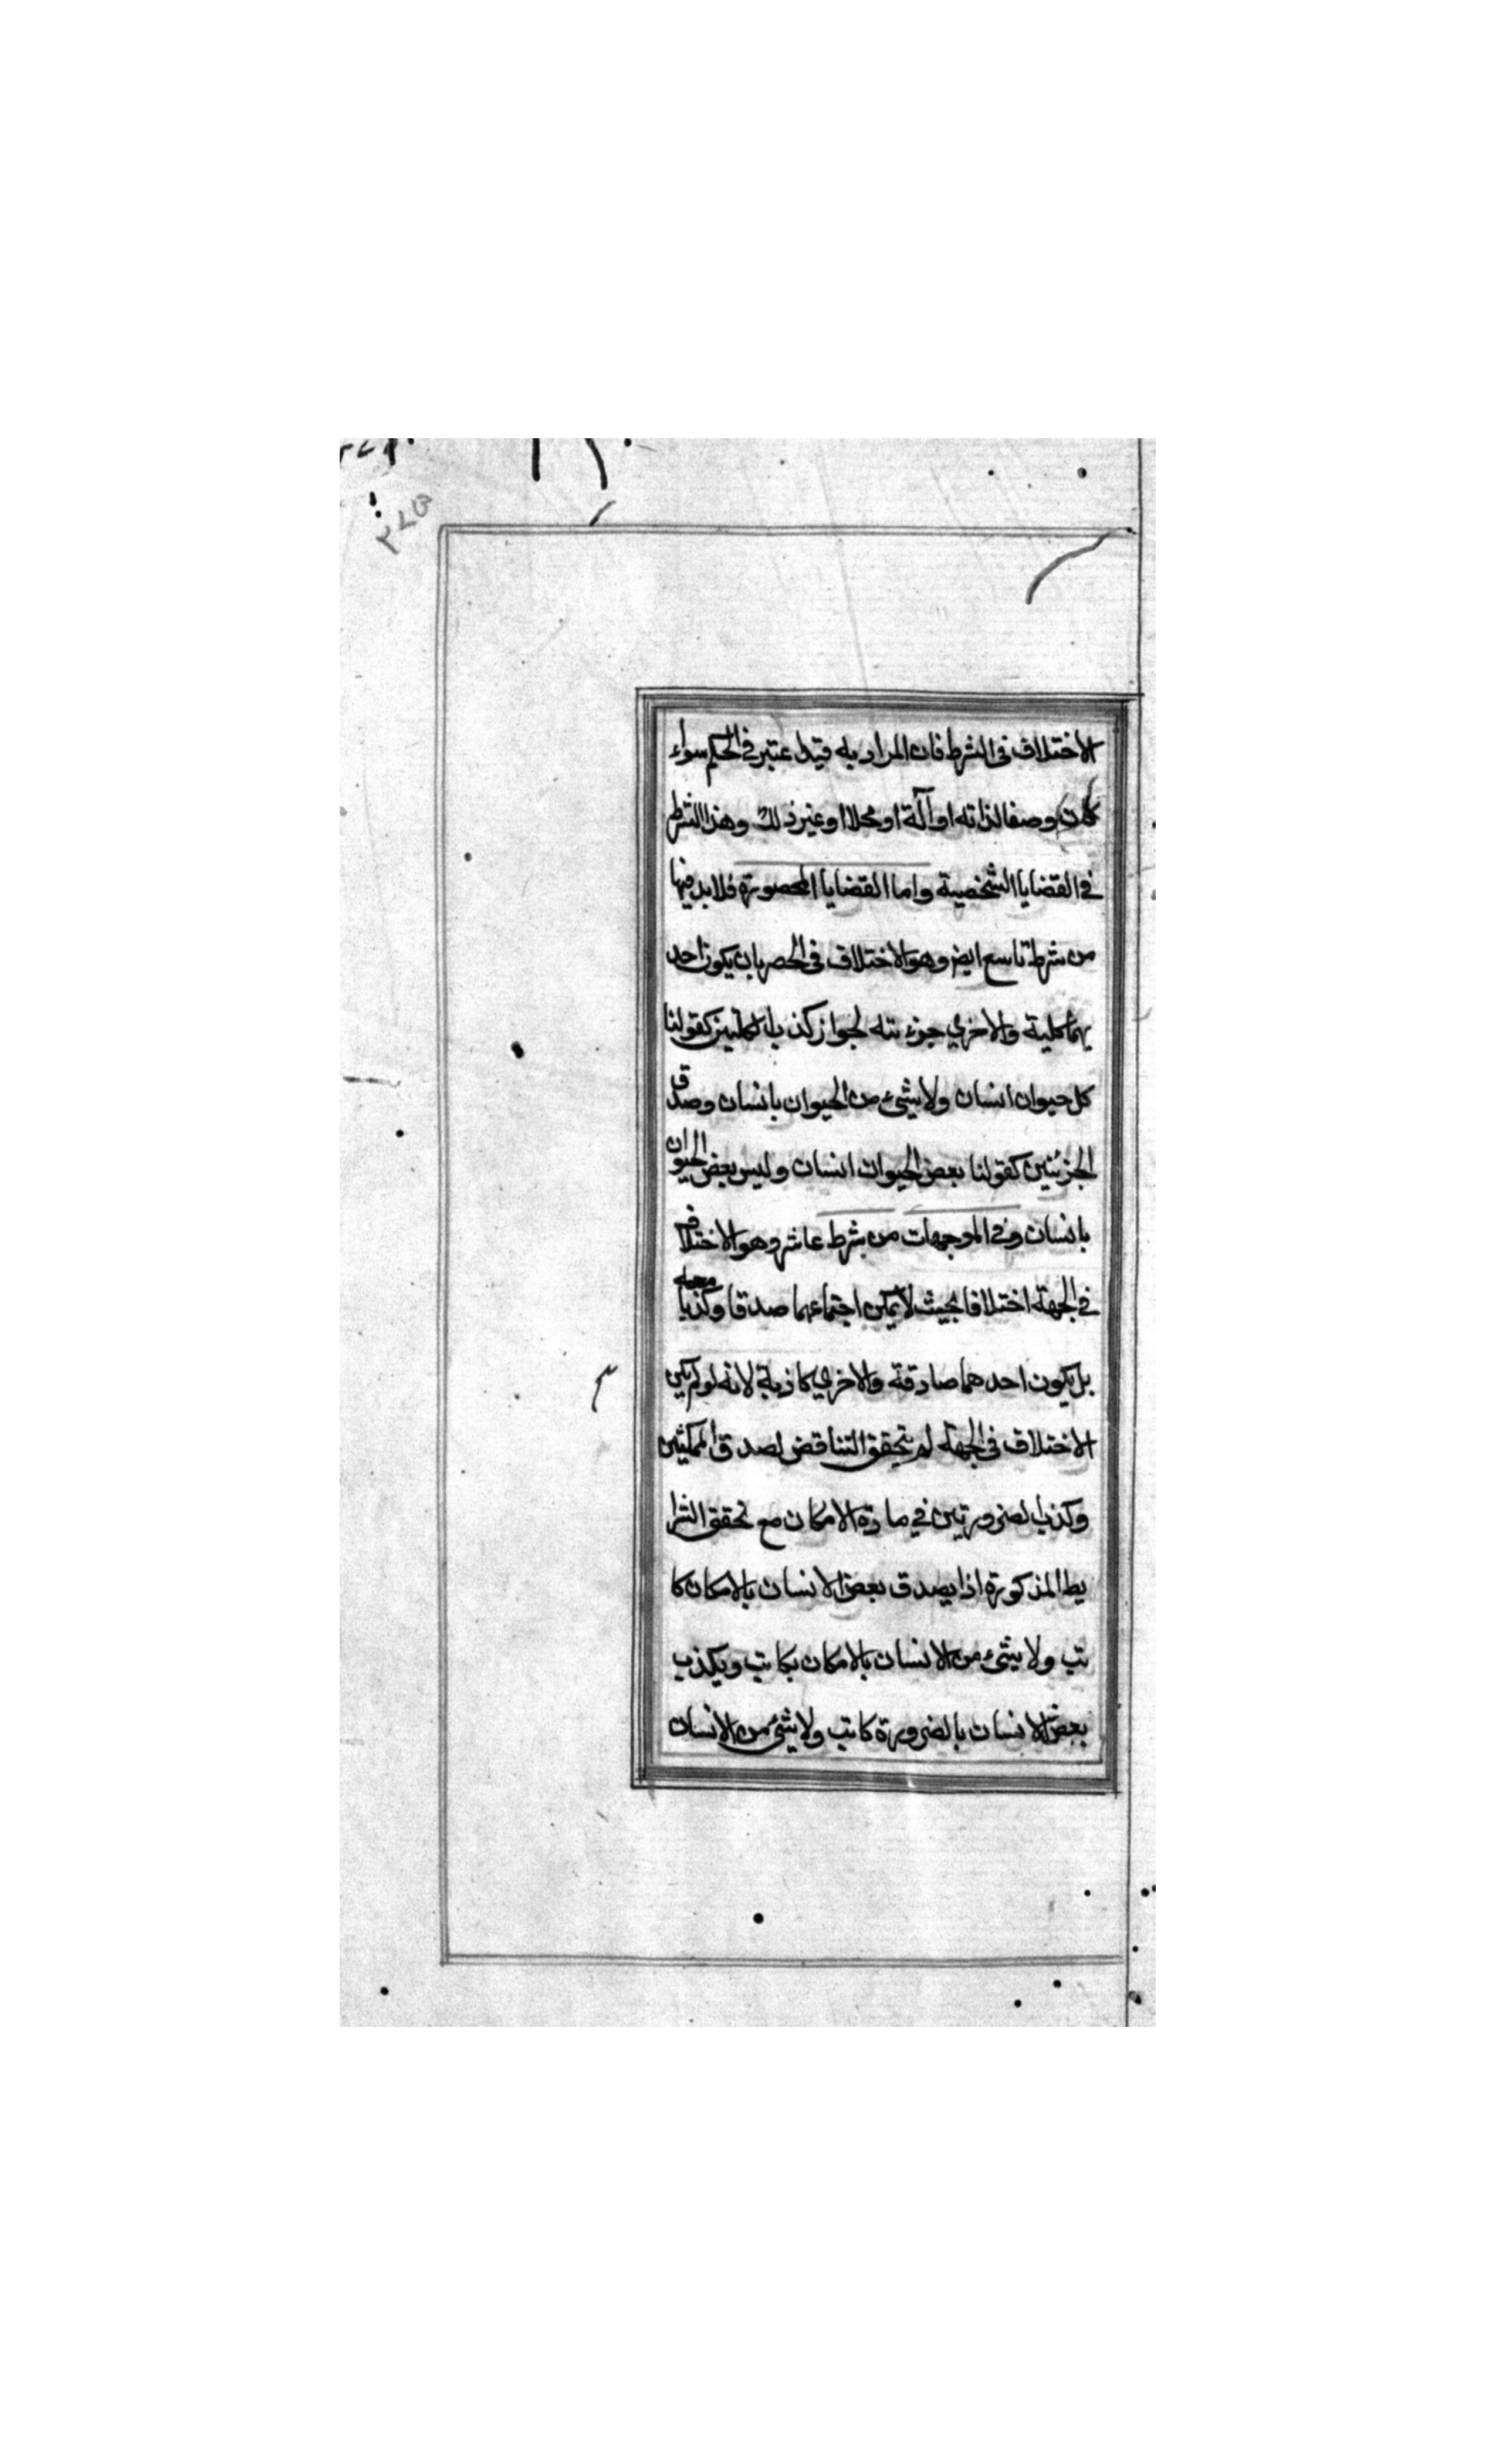 الاختلاف فى الشرط فان المراد به قيد اعتبر فى الحكم سواء
كان وصفا لذاته او آلة او محلا او غير ذلك وهذا الشرط
فى القضايا الشخصية واما القضايا المحصورة فلابد فيها
من شرط تاسع ايض وهو الاختلاف فى الحصر بان يكون احد
يهما كلية والاخرى جزء يته لجواز كذب الكليتين كقولنا
كل حيوان انسان ولا شىء من الحيوان بانسان وصدق
الجزئيتين كقولنا بعض الحيوان انسان وليس بعض الحيوان
بانسان وفى الموجهات من شرط عاشر وهو الاختلاف
فى الجهة اختلافا بحيث لا يمكن اجتماعهما صدقا وكذبا
بل يكون احدهما صادقة والاخرى كاذبة لانه لو لم يكن
الاختلاف فى الجهة لم يتحقق التناقض لصدق الممكنتين
وكذب الضرورتين في مادة الامكان مع تحقق الشرا
يط المذكورة اذا يصدق بعض الانسان بالامكان كا
تب ولا شىء من الانسان بالامكان بكاتب ويكذب
بعض الانسان بالضرورة كاتب ولا شىء من الانسان